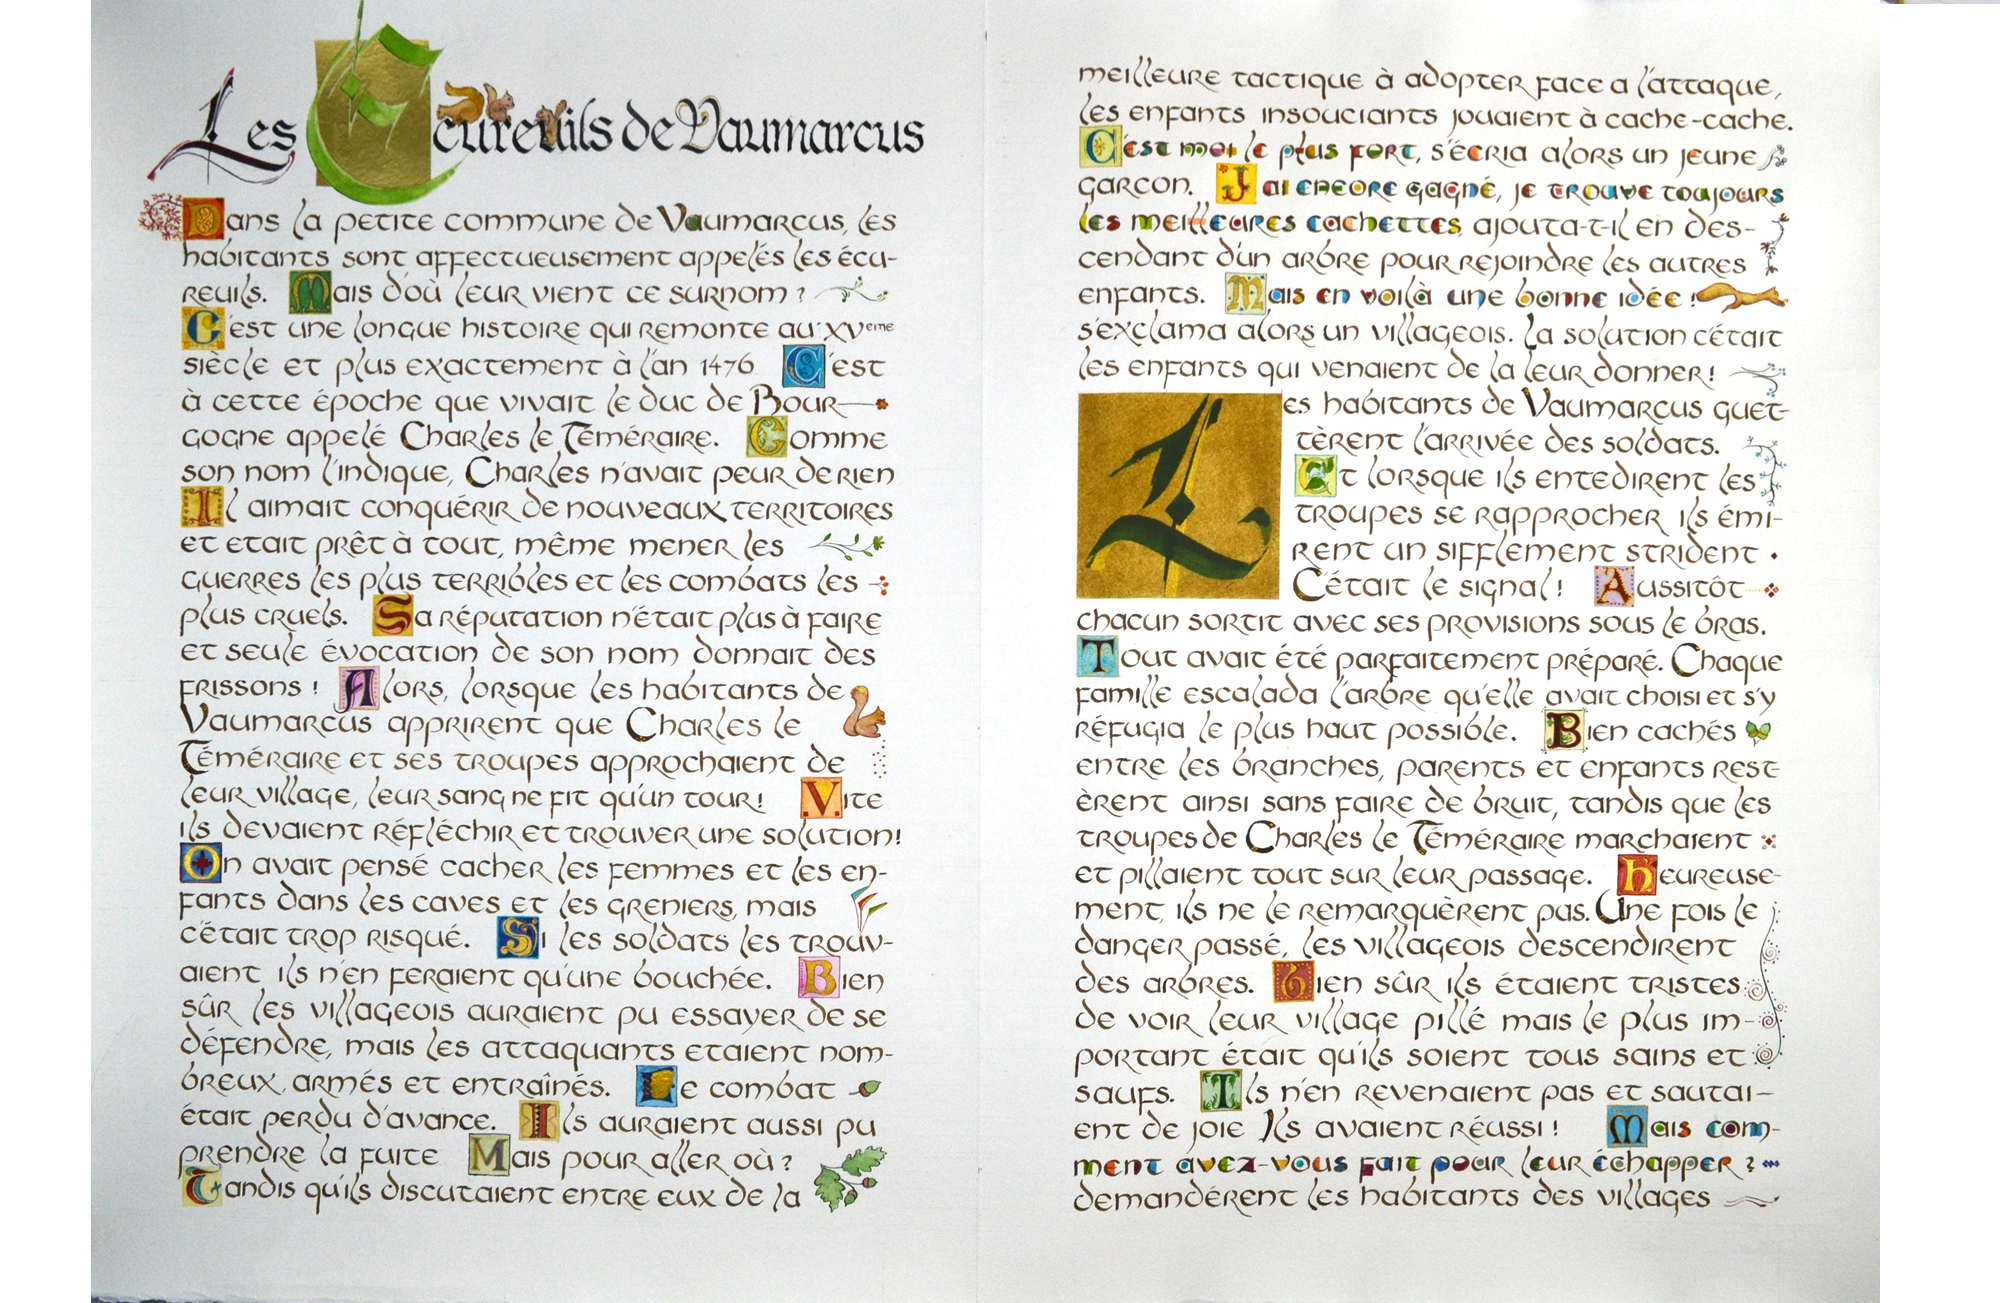 Les Ecureuils de Vaumarcus
Dans la petite commune de Vaumarcus, les
habitants sont affectueusement appelés les écu-
reuils. Mais d'où leur vient ce surnom ?
C'est une longue histoire qui remonte au XVeme
siècle et plus exactement à l'an 1476 C'est
à cette époche que vivait le duc de Bour-
gogne appelé Charles le Téméraire. Comme
son nom l'indique, Charles n'avait peur de rien
Il aimait conquérir de nouveaux territoires
et etait prêt à tout, même mener les
guerres les plus terribles et les combats les
plus cruels. Sa réputation n'était plus à faire
et seule évocation de son nom donnait des
frissons ! Alors, lorsque les habitants de
Vaumarcus apprirent que Charles le
Téméraire et ses troupes approchaient de
leur village, leur sang ne fit qu'un tour ! Vite
ils devaient réfléchir et trouver une solution !
On avait pensé cacher les femmes et les en-
fants dans les caves et les greniers, mais
c'était trop risqué. Si les soldats les trouv-
aient, ils n'en feraient qu'une bouchée. Bien
sûr les villageois auraient pu essayer de se
défendre, mais les attaquants etaient nom-
breux, armés et entraînés. Le combat
était perdu d'avance. Ils auraient aussi pu
prendre la fuite Mais pour aller où ?
Tandis qu'ils discutaient entre eux de la
meilleure tactique à adopter face a l'attaque,
les enfants insouciants jouaient à cache-cache.
C'est moi le plus fort, s'écria alors un jeune
garcon. J'ai encore gagné, je trouve toujours
les meilleures cachettes, ajouta-t-il en des-
cendant d'un arbre pour rejoindre les autres
enfants. Mais en voilà une bonne idée !
s'exclama alors un villageois. La solution c'était
les enfants qui venaient de la leur donner !
Les habitants de Vaumarcus guet-
tèrent l'arrivée des soldats.
Et lorsque ils entedirent les
troupes se rapprocher ils émi-
rent un sifflement strident.
C'était le signal ! Aussitôt
chacun sortit avec ses provisions sous le bras.
Tout avait été parfaitement préparé. Chaque
famille escalada l'arbre qu'elle avait choisi et s'y
réfugia le plus haut possible. Bien cachés
entre les branches, parents et enfants rest-
èrent ainsi sans faire de bruit, tandis que les
troupes de Charles le Téméraire marchaient
et pillaient tout sur leur passage. Heureuse-
ment, ils ne le remarquèrent pas. Une fois le
danger passé, les villageois descendirent
des arbres. Bien sûr ils étaient tristes
de voir leur village pillé mais le plus im-
portant était qu'ils soient tous sains et
saufs. Ils n'en revenaient pas et sautai-
ent de joie Ils avaient réussi ! Mais com-
ment avez-vous fait pour leur échapper ?
demandérent les habitants des villages